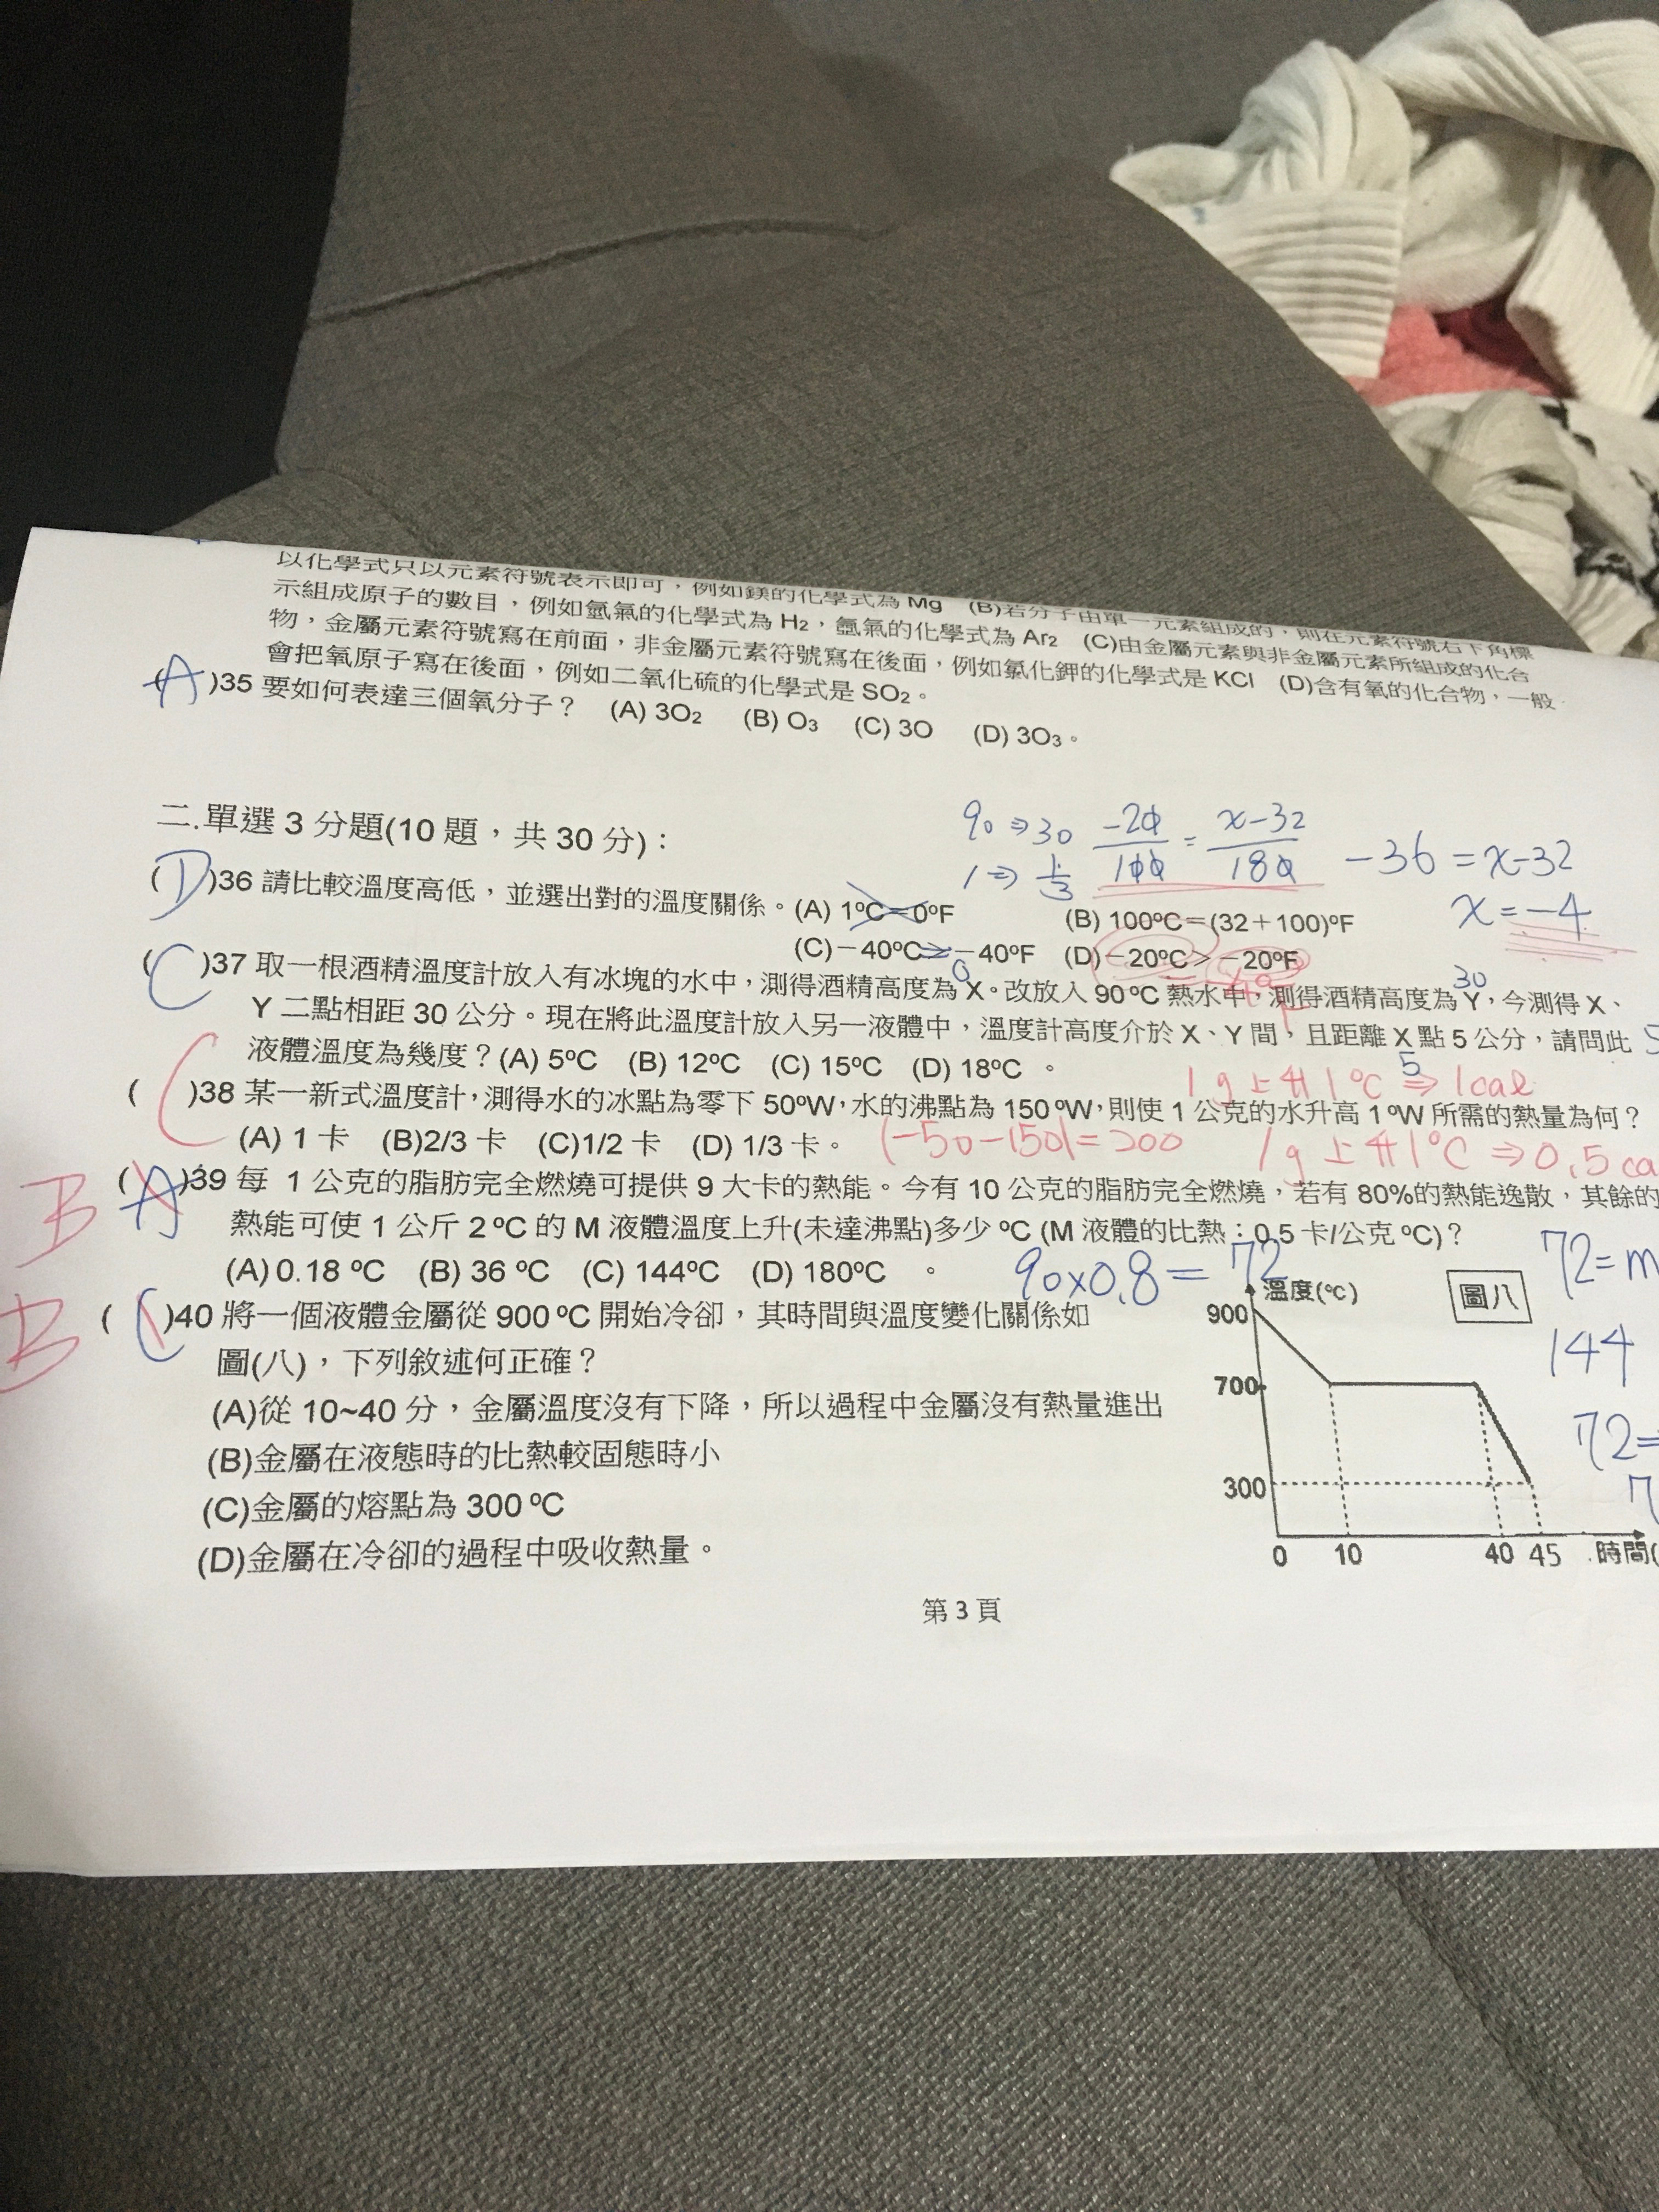 以化學式只以元素符號表示即可，例如鎂的化學式為 Mg (B)若分子由單一元素組成的，則在元素符號右下角標
示組成原子的數目，例如氫氣的化學式為 H2，氬氣的化學式為 Ar2 (C)由金屬元素與非金屬元素所組成的化合
物，金屬元素符號寫在前面，非金屬元素符號寫在後面，例如氯化鉀的化學式是 KCl (D)含有氧的化合物，一般
會把氧原子寫在後面，例如二氧化硫的化學式是 SO2。
(A)35 要如何表達三個氧分子？ (A) 3O2 (B) O3 (C) 3O (D) 3O3。
二.單選 3 分題(10 題，共 30 分)：
90 ⇒ 30
1 ⇒ 1/3
-20/100 = x-32/180
-36 = x-32
x = -4
(D)36 請比較溫度高低，並選出對的溫度關係。(A) 1ºC=0ºF (B) 100ºC=(32+100)ºF
(C)－40ºC＞－40ºF (D)－20ºC＞－20ºF
(C)37 取一根酒精溫度計放入有冰塊的水中，測得酒精高度為 X。改放入 90ºC 熱水中，測得酒精高度為 Y，今測得 X、
0
30
Y 二點相距 30 公分。現在將此溫度計放入另一液體中，溫度計高度介於 X、Y 間，且距離 X 點 5 公分，請問此
5
液體溫度為幾度？(A) 5ºC (B) 12ºC (C) 15ºC (D) 18ºC 。
1g 上升 1ºC ⇒ 1cal
(C)38 某一新式溫度計，測得水的冰點為零下 50ºW，水的沸點為 150 ºW，則使 1 公克的水升高 1 ºW 所需的熱量為何？
(A) 1 卡 (B)2/3 卡 (C)1/2 卡 (D) 1/3 卡。
|-50-150|=200
1g 上升 1ºC ⇒ 0.5 ca
B
(A)39 每 1 公克的脂肪完全燃燒可提供 9 大卡的熱能。今有 10 公克的脂肪完全燃燒，若有 80%的熱能逸散，其餘的
熱能可使 1 公斤 2ºC 的 M 液體溫度上升(未達沸點)多少 ºC (M 液體的比熱：0.5 卡/公克 ºC)？
(A) 0.18 ºC (B) 36 ºC (C) 144ºC (D) 180ºC 。
90×0.8=72
72=m
144
72=
7
B
(C)40 將一個液體金屬從 900 ºC 開始冷卻，其時間與溫度變化關係如
圖(八)，下列敘述何正確？
(A)從 10~40 分，金屬溫度沒有下降，所以過程中金屬沒有熱量進出
(B)金屬在液態時的比熱較固態時小
(C)金屬的熔點為 300 ºC
(D)金屬在冷卻的過程中吸收熱量。
溫度(ºC)
圖八
900
700
300
0 10 40 45 時間(
第 3 頁